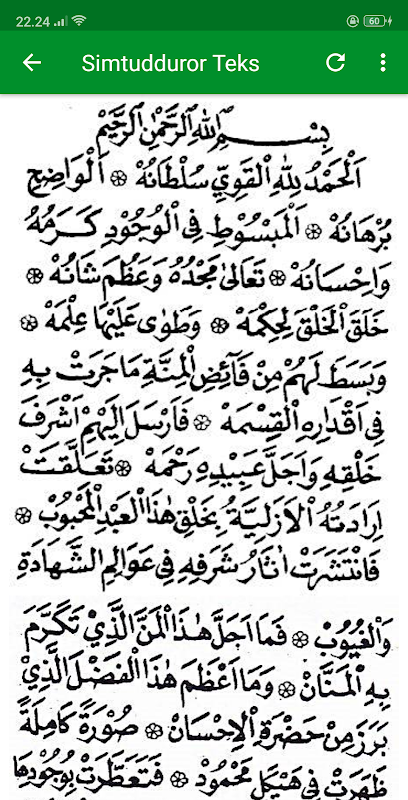 22.24 60
Simtudduror Teks
بِسْمِ اللهِ الرَّحْمٰنِ الرَّحِيْمِ
اَلْحَمْدُ لِلّٰهِ الْقَوِيِّ سُلْطَانُهْ ۞ اَلْوَاضِحِ
بُرْهَانُهْ ۞ اَلْمَبْسُوْطِ فِي الْوُجُوْدِ كَرَمُهُ
وَاِحْسَانُهْ ۞ تَعَالىٰ مَجْدُهُ وَعَظُمَ شَانُهْ ۞
خَلَقَ الْخَلْقَ لِحِكْمَهْ ۞ وَطَوٰى عَلَيْهَا عِلْمَهْ ۞
وَبَسَطَ لَهُمْ مِنْ فَآئِضِ الْمِنَّةِ مَاجَرَتْ بِهِ
فِي اَقْدَارِهِ الْقِسْمَهْ ۞ فَاَرْسَلَ اِلَيْهِمْ اَشْرَفَ
خَلْقِهِ وَاَجَلَّ عَبِيْدِهِ رَحْمَهْ ۞ تَعَلَّقَتْ
اِرَادَتُهُ الْاَزَلِيَّةُ بِخَلْقِ هٰذَا الْعَبْدِ الْمَحْبُوْبْ ۞
فَانْتَشَرَتْ اٰثَارُ شَرَفِهِ فِي عَوَالِمِ الشَّهَادَةِ
وَالْغُيُوْبْ ۞ فَمَا اَجَلَّ هٰذَا الْمَنَّ الَّذِيْ تَكَرَّمَ
بِهِ الْمَنَّانْ ۞ وَمَا اَعْظَمَ هٰذَا الْفَضْلَ الَّذِيْ
بَرَزَ مِنْ حَضْرَةِ الْاِحْسَانْ ۞ صُوْرَةً كَامِلَةً
ظَهَرَتْ فِي هَيْكَلٍ مَحْمُوْدْ ۞ فَتَعَطَّرَتْ بِوُجُوْدِهَا